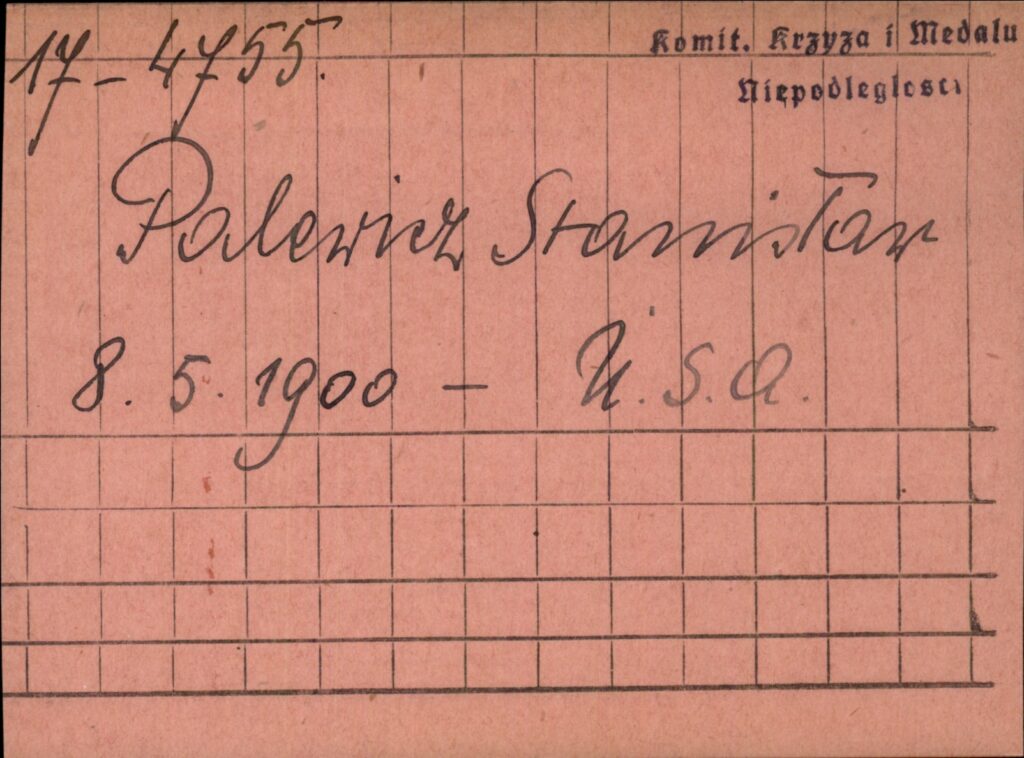 17-4755.
Komit. Krzyza i Medalu
Niepodleglosci
Palewicz Stanisław
8. 5. 1900 – U.S.A.